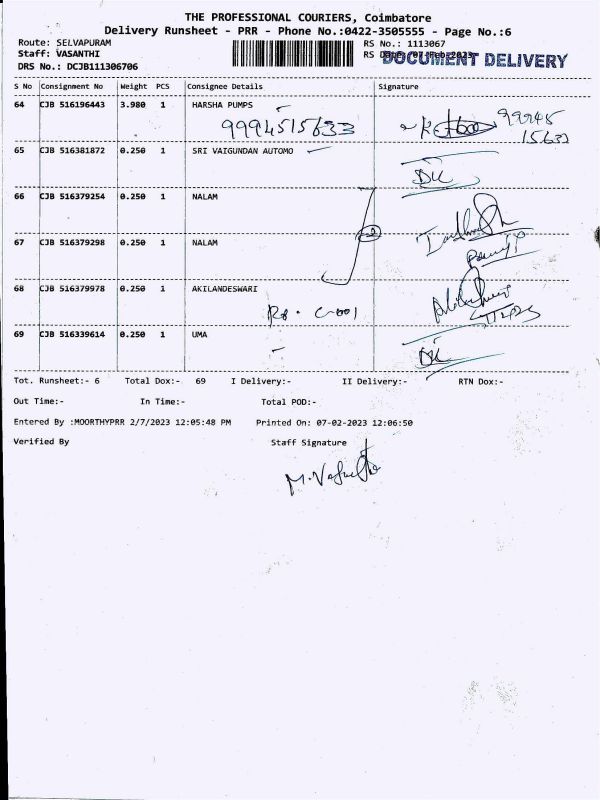 THE PROFESSIONAL COURIERS, Coimbatore
Delivery Runsheet - PRR - Phone No.:0422-3505555 - Page No.:6
Route: SELVAPURAM
RS No.: 1113067
Staff: VASANTHI
RS Date: 07-Feb-2023
DOCUMENT DELIVERY
DRS No.: DCJB111306706
S No Consignment No Weight PCS Consignee Details Signature
64 CJB 516196443 3.980 1 HARSHA PUMPS
9994515633
99945
15633
65 CJB 516381872 0.250 1 SRI VAIGUNDAN AUTOMO
DK
66 CJB 516379254 0.250 1 NALAM
67 CJB 516379298 0.250 1 NALAM
68 CJB 516379978 0.250 1 AKILANDESWARI
69 CJB 516339614 0.250 1 UMA
DK
Tot. Runsheet:- 6 Total Dox:- 69 I Delivery:- II Delivery:- RTN Dox:-
Out Time:- In Time:- Total POD:-
Entered By :MOORTHYPRR 2/7/2023 12:05:48 PM Printed On: 07-02-2023 12:06:50
Verified By Staff Signature